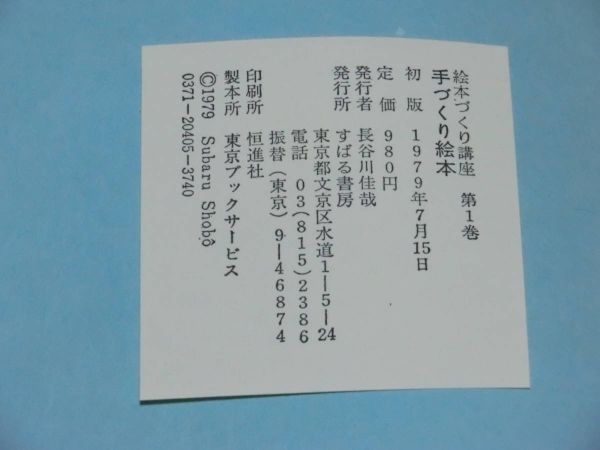 絵本づくり講座　第1巻
手づくり絵本
初版　1979年7月15日
定価　980円
発行者　長谷川佳哉
発行所　すばる書房
東京都文京区水道1—5—24
電話　03(815)2386
振替(東京)9—46874
印刷所　恒進社
製本所　東京ブックサービス
©1979　Subaru Shobô
0371—20405—3740